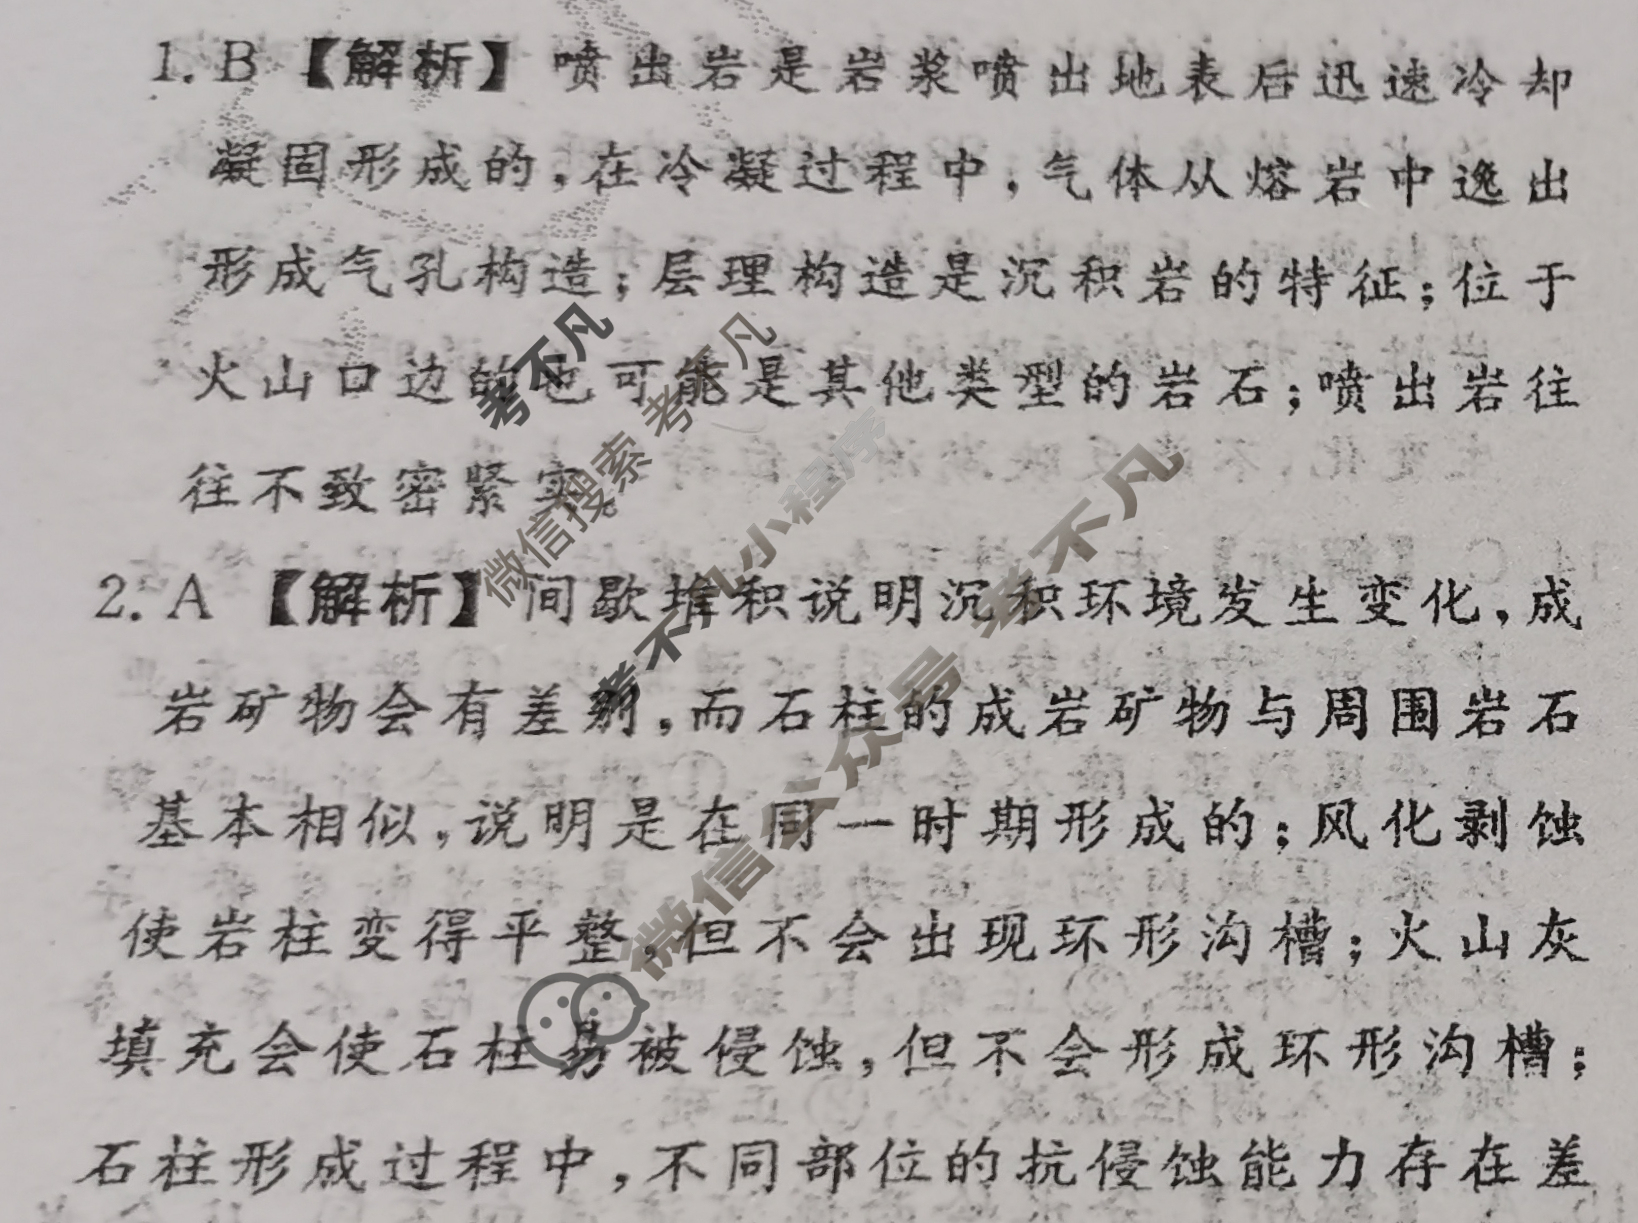 1. B 【解析】 喷出岩是岩浆喷出地表后迅速冷却
凝固形成的，在冷凝过程中，气体从熔岩中逸出
形成气孔构造；层理构造是沉积岩的特征；位于
火山口边的也可能是其他类型的岩石；喷出岩往
往不致密紧实。
2. A 【解析】 间歇堆积说明沉积环境发生变化，成
岩矿物会有差别，而石柱的成岩矿物与周围岩石
基本相似，说明是在同一时期形成的；风化剥蚀
使岩柱变得平整，但不会出现环形沟槽；火山灰
填充会使石柱易被侵蚀，但不会形成环形沟槽；
石柱形成过程中，不同部位的抗侵蚀能力存在差
考不凡
微信搜索 考不凡
考不凡小程序
微信公众号 考不凡